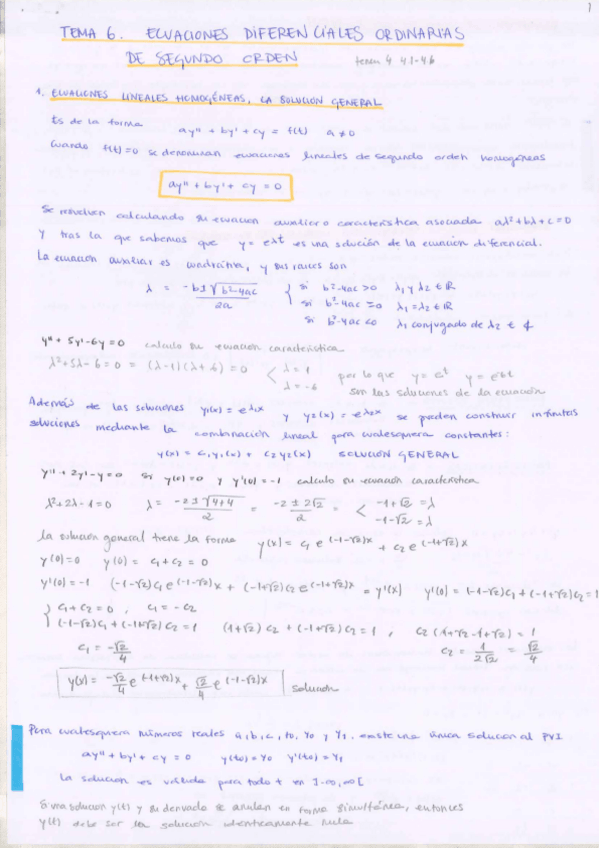 1
TEMA 6. ECUACIONES DIFERENCIALES ORDINARIAS
DE SEGUNDO ORDEN tema 4 4.1-4.6
1. ECUACIONES LINEALES HOMOGÉNEAS, LA SOLUCIÓN GENERAL
Es de la forma
ay'' + by' + cy = f(t) a ≠ 0
Cuando f(t)=0 se denominan ecuaciones lineales de segundo orden homogéneas
ay'' + by' + cy = 0
Se resuelven calculando su ecuación auxiliar o característica asociada aλ²+bλ+c=0
y tras la que sabemos que y = e^λt es una solución de la ecuación diferencial.
La ecuación auxiliar es cuadrática, y sus raíces son
λ = -b±√b²-4ac / 2a { si b²-4ac >0 λ1 y λ2 ∈ R
si b²-4ac =0 λ1=λ2 ∈ R
si b²-4ac <0 λ1 conjugado de λ2 ∈ ₵
y'' + 5y' - 6y = 0 calculo su ecuación característica
λ²+5λ-6=0 = (λ-1)(λ+6)=0 < λ=1
λ=-6 por lo que y= e^t y= e^-6t
son las soluciones de la ecuación
Además de las soluciones y1(x)= e^λ1x y y2(x)= e^λ2x se pueden construir infinitas
soluciones mediante la combinación lineal para cualesquiera constantes:
y(x) = c1y1(x) + c2y2(x) SOLUCIÓN GENERAL
y''+2y'-y=0 si y(0)=0 y y'(0)=-1 calculo su ecuación característica
λ²+2λ-1=0 λ = -2±√4+4 / 2 = -2±2√2 / 2 = < -1+√2 = λ
-1-√2 = λ
la solución general tiene la forma y(x) = c1 e^(-1-√2)x + c2 e^(-1+√2)x
y(0)=0 y(0) = c1 + c2 = 0
y'(0)=-1 (-1-√2)c1e^(-1-√2)x + (-1+√2)c2 e^(-1+√2)x = y'(x) y'(0)= (-1-√2)c1 + (-1+√2)c2=1
{ c1 + c2 = 0 , c1 = -c2
(-1-√2)c1 + (-1+√2)c2 = 1 (1+√2) c2 + (-1+√2)c2 = 1 ; c2 (1+√2-1+√2) = 1
c1 = -√2/4 c2 = 1/2√2 = √2/4
y(x) = -√2/4 e^(-1+√2)x + √2/4 e^(-1-√2)x solución
Para cualesquiera números reales a, b, c, t0, y0 y y1, existe una única solución al PVI
ay'' + by' + cy = 0 y(t0)= y0 y'(t0)= y1
La solución es válida para todo t en ]-∞,∞[
Si una solución y(t) y su derivada se anulan en forma simultánea, entonces
y(t) debe ser la solución idénticamente nula